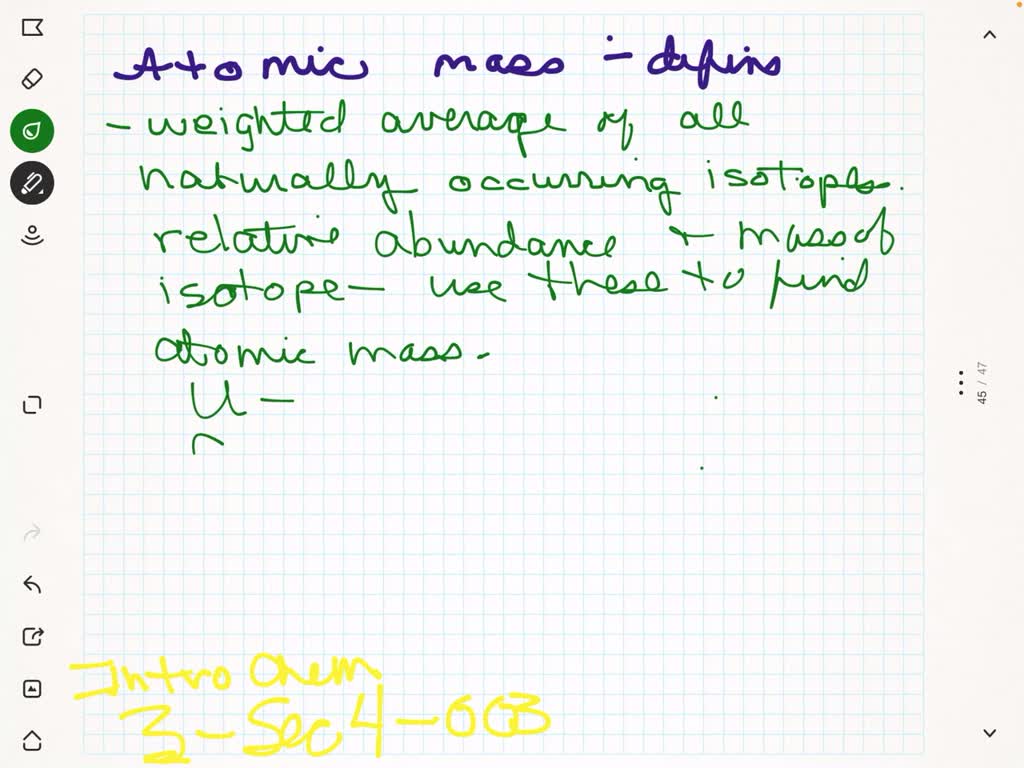 Atomic mass - defins
- weighted average of all
naturally occurring isotopes.
relative abundance + mass of
isotope - use these to find
atomic mass.
U -
Intro Chem
3 - Sec 4 - 003
45 / 47